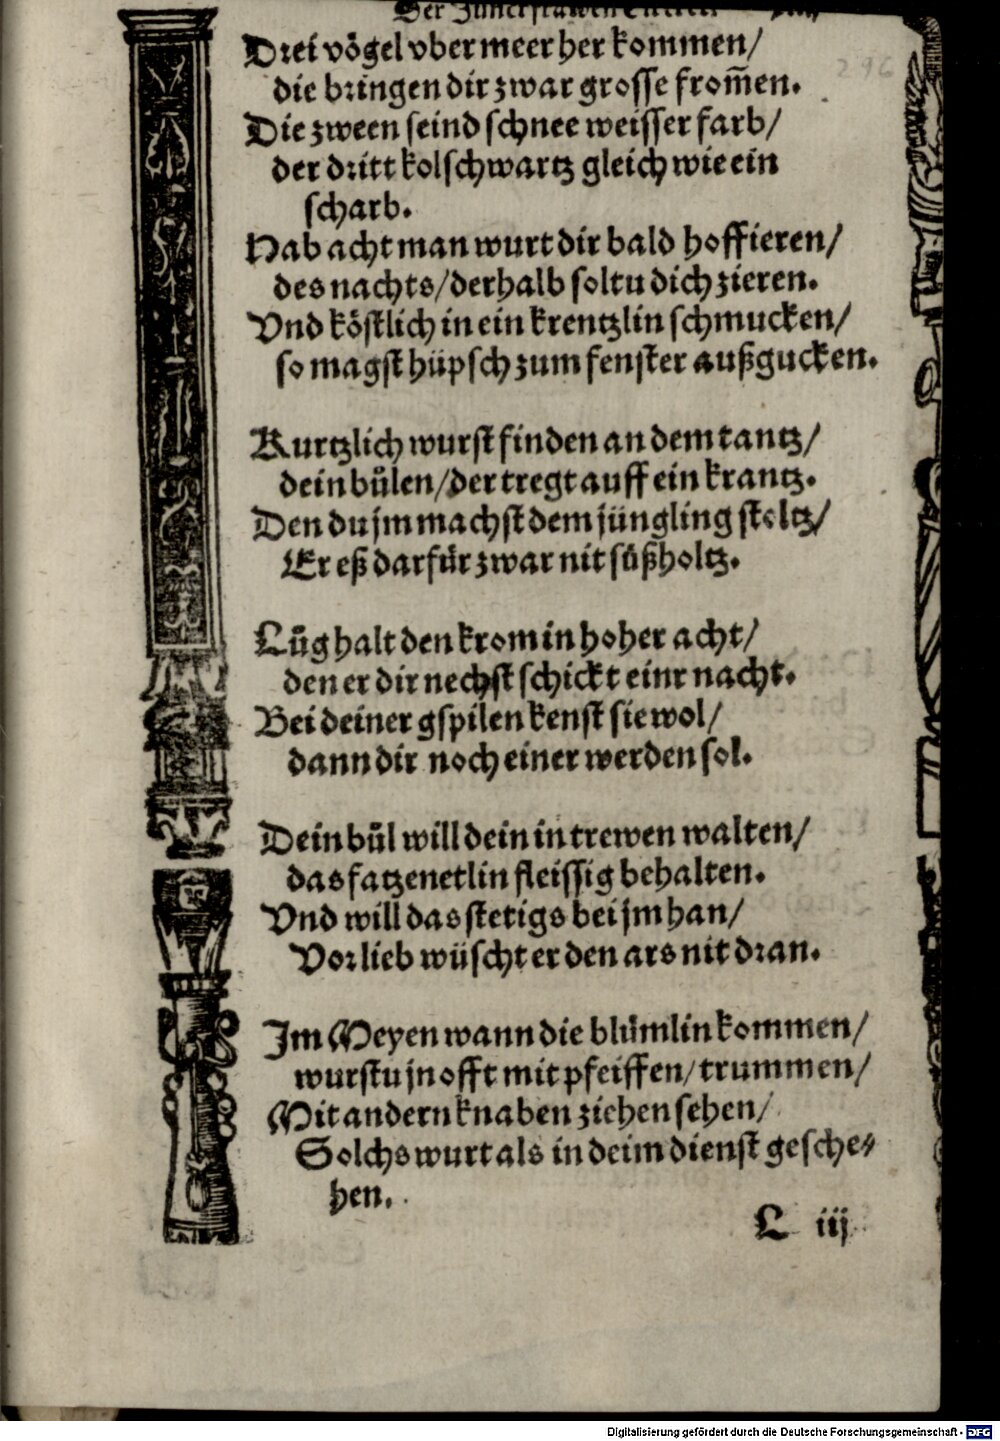 Der Junckfrawen
Drei vögel vber meer her kommen/
die bringen dir zwar grosse from̃en.
Die zween seind schnee weisser farb/
der dritt kolschwartz gleich wie ein
scharb.
Hab acht man wurt dir bald hoffieren/
des nachts/derhalb soltu dich zieren.
Vnd köstlich in ein krentzlin schmucken/
so magst hüpsch zum fenster außgucken.
Kurtzlich wurst finden an dem tantz/
dein bůlen/der tregt auff ein krantz.
Den du jm machst dem jüngling steltz/
Er eß darfür zwar nit süßholtz.
Lůg halt den krom in hoher acht/
den er dir nechst schickt einr nacht.
Bei deiner gspilen kenst sie wol/
dann dir noch einer werden sol.
Dein bůl will dein in trewen walten/
das fatzenetlin fleissig behalten.
Vnd will das stetigs bei jm han/
Vor lieb wüscht er den ars nit dran.
Im Meyen wann die blümlin kommen/
wurstu jn offt mit pfeiffen/trummen/
Mit andern knaben ziehen sehen/
Solchs wurt als in deim dienst gesche⸗
hen.
L iij
296
Digitalisierung gefördert durch die Deutsche Forschungsgemeinschaft - DFG